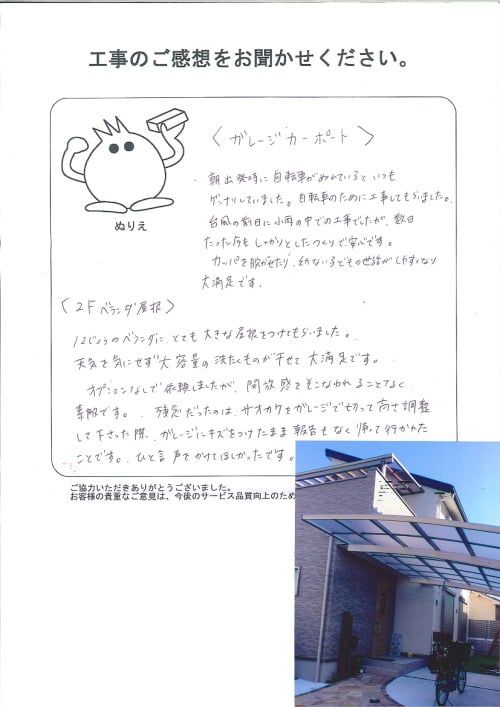 工事のご感想をお聞かせください。
〈ガレージカーポート〉
ぬりえ
朝出発時に自転車がぬれていると いつも
ゲンナリしていました。自転車のために工事してもらいました。
台風の前日に小雨の中での工事でしたが、数日
たった今も しっかりとしたつくりで安心です。
カッパを脱がせたり、幼ない子どもの世話がしやすくなり
大満足です。
〈2Fベランダ屋根〉
12じょうのベランダに、とても大きな屋根をつけてもらいました。
天気を気にせず大容量の洗たくものが干せて大満足です。
オプションなしで依頼しましたが、開放感をそこなわれることなく
素敵です。残念だったのは、サオカケをガレージで切って高さ調整
して下さった際、ガレージにキズをつけたまま報告もなく帰って行かれた
ことです。ひと言声をかけてほしかったです。
ご協力いただきありがとうございました。
お客様の貴重なご意見は、今後のサービス品質向上のため